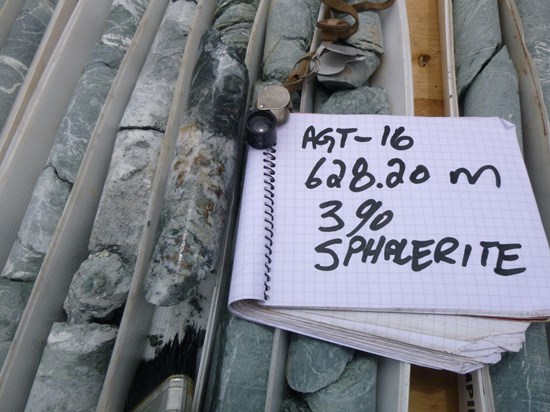 AGT-16
628.20 m
3%
SPHALERITE